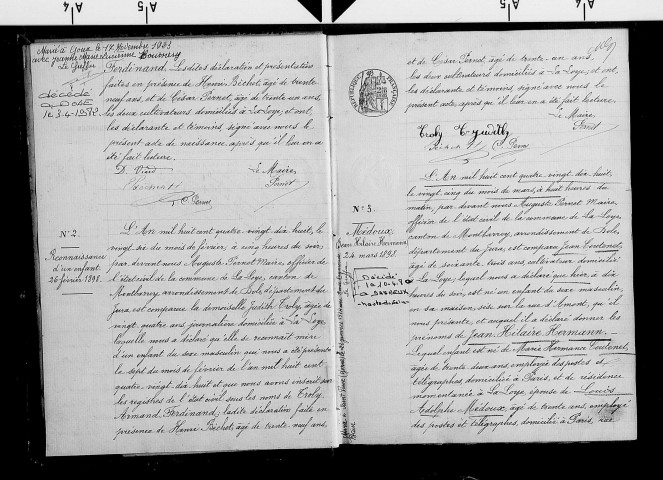 Marié à Goux le 12 Novembre 1921
avec Jeanne Marie Lucienne Bournez
Le Greffier
décédé
DOLE
le 3-4-1972
Ferdinand. Les dites déclaration et présentation
faites en présence de Henri Béchot, âgé de trente
neuf ans, et de César Perret, âgé de trente un ans,
les deux cultivateurs domiciliés à La-Loye, et ont,
les déclarante et témoins, signé avec nous le
présent acte de naissance, après qu'il leur en a
été fait lecture.
D. Viard Le Maire
Perret
C. Perret
N° 2.
Reconnaissance
d'un enfant
26 février 1898.
L'An mil huit cent quatre vingt dix huit, le
vingt six du mois de février, à cinq heures du soir
par devant nous Auguste Perret Maire, officier de
l'état civil de la commune de La Loye, canton de
Montbarrey, arrondissement de Dole, département du
Jura, est comparue la demoiselle Judith Troly, âgée de
vingt quatre ans, journalière domiciliée à La-Loye,
laquelle nous a déclaré qu'elle se reconnait mère
d'un enfant du sexe masculin qui nous a été présenté
le sept du mois de février de l'an mil huit cent
quatre vingt dix huit et que nous avons inscrit sur
les registres de l'état civil sous les noms de Troly
Armand Ferdinand; la dite déclaration faite en
présence de Henri Béchot, âgé de trente neuf ans,
et de César Perret, âgé de trente un ans,
les deux cultivateurs domiciliés à La-Loye, et ont,
les déclarante et témoins, signé avec nous le
présent acte, après qu'il leur en a été fait lecture.
Le Maire
Perret
Troly Judith
C. Perret
N° 3.
Médoux
Jean Hilaire Hermann
24 mars 1898.
Décédé
le 10-4-80
à BAGNEUX
L'An mil huit cent quatre vingt dix huit,
le vingt cinq du mois de mars, à huit heures du
matin, par devant nous Auguste Perret Maire,
officier de l'état civil de la commune de La-Loye,
canton de Montbarrey, arrondissement de Dole,
département du Jura, est comparu Jean Toutenel,
âgé de soixante trois ans, cultivateur domicilié
à La-Loye, lequel nous a déclaré que hier, à dix
heures du soir, est né un enfant du sexe masculin,
en sa maison, sise sur la rue d'Amont, qu'il
nous présente, et auquel il a déclaré donner les
prénoms de Jean Hilaire Hermann.
Lequel enfant est né de Marie Hermance Toutenel,
âgée de trente deux ans, employée des postes et
télégraphes, domiciliée à Paris, et de résidence
momentanée à La-Loye, épouse de Louis
Adolphe Médoux, âgé de trente ans, employé
des postes et télégraphes, domicilié à Paris, rue